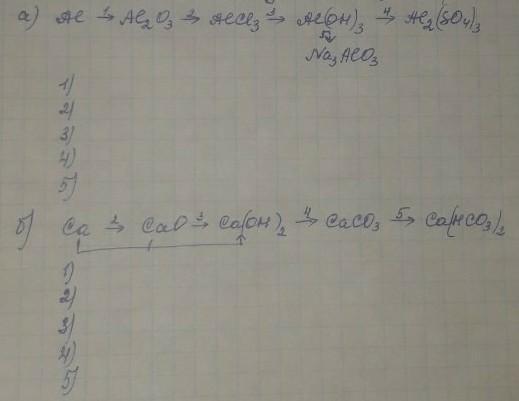 а) Al 1→ Al₂O₃ 2→ AlCl₃ 3→ Al(OH)₃ 4→ Al₂(SO₄)₃
5↓
Na₃AlO₃
1)
2)
3)
4)
5)
б) Ca 2→ CaO 3→ Ca(OH)₂ 4→ CaCO₃ 5→ Ca(HCO₃)₂
1
1)
2)
3)
4)
5)